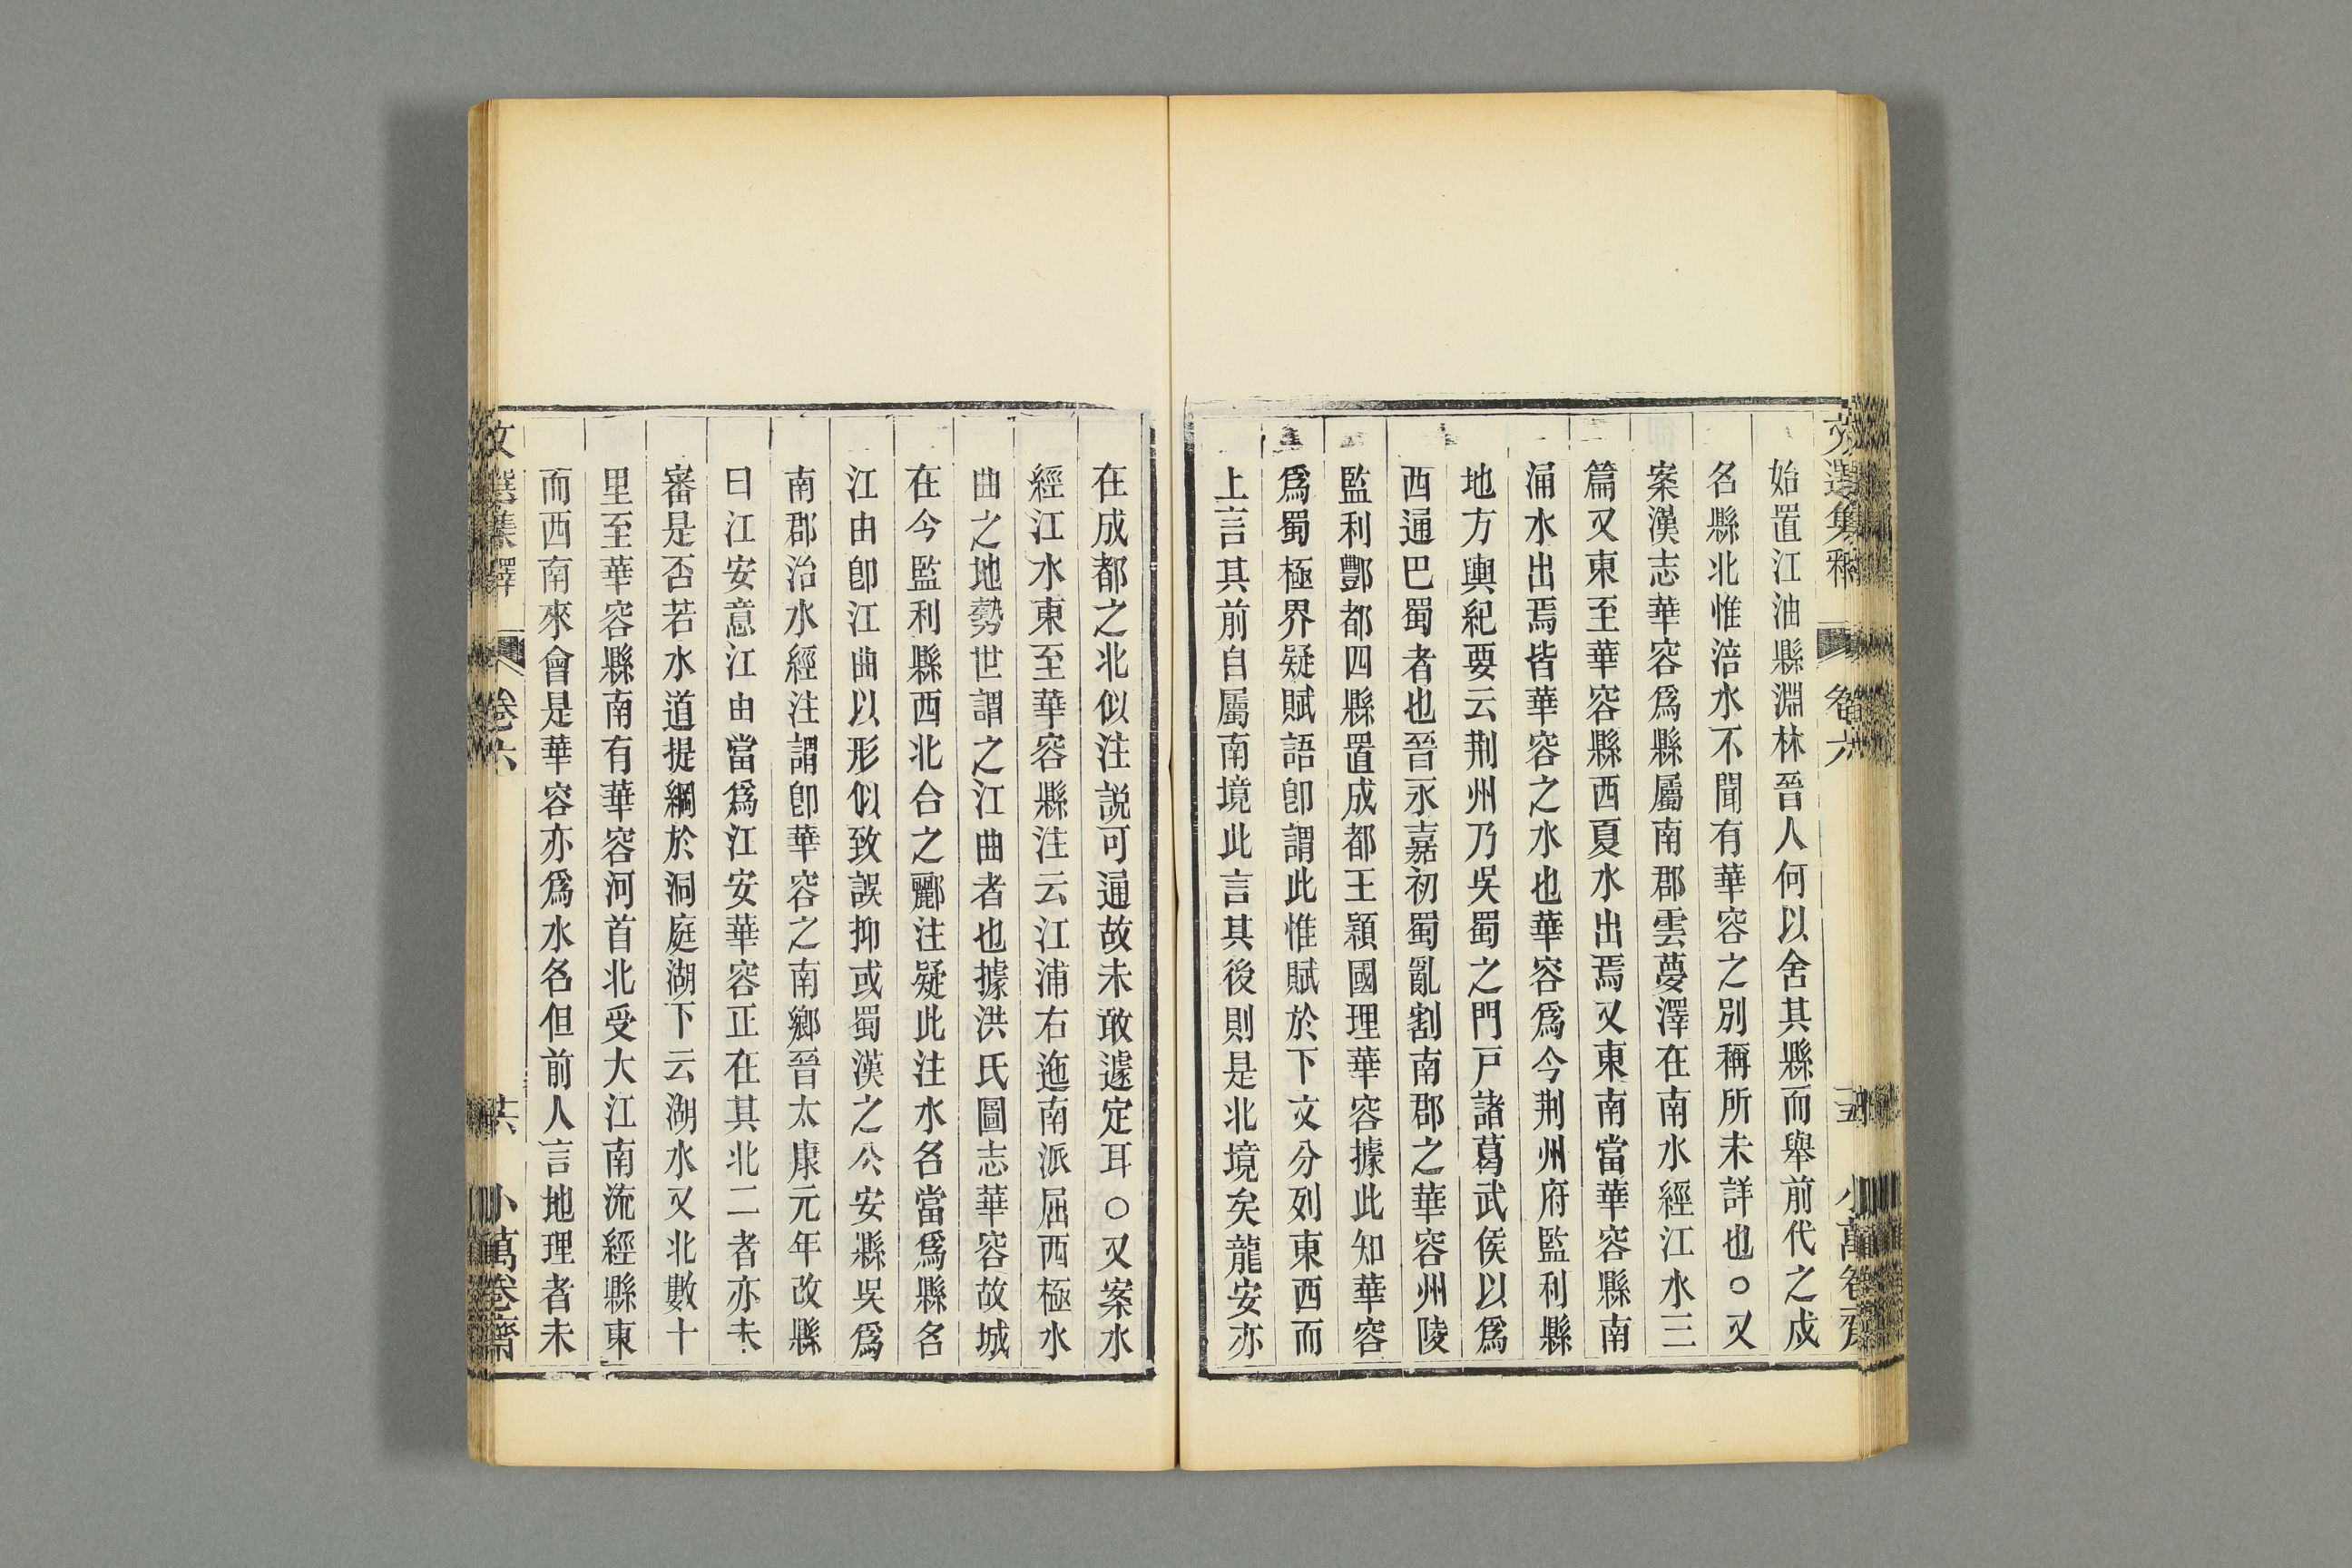 始置江油縣淵林晉人何以舍其縣而舉前代之戍
名縣北惟涪水不聞有華容之別稱所未詳也○又
案漢志華容爲縣屬南郡雲夢澤在南水經江水三
篇又東至華容縣西夏水出焉又東南當華容縣南
涌水出焉皆華容之水也華容爲今荆州府監利縣
地方輿紀要云荆州乃吳蜀之門戸諸葛武侯以爲
西通巴蜀者也晉永嘉初蜀亂割南郡之華容州陵
監利酆都四縣置成都王穎國理華容據此知華容
爲蜀極界疑賦語卽謂此惟賦於下文分列東西而
上言其前自屬南境此言其後則是北境矣龍安亦
在成都之北似注説可通故未敢遽定耳○又案水
經江水東至華容縣注云江浦右迤南派屈西極水
曲之地勢世謂之江曲者也據洪氏圖志華容故城
在今監利縣西北合之酈注疑此注水名當爲縣名
江由卽江曲以形似致誤抑或蜀漢之公安縣吳爲
南郡治水經注謂卽華容之南鄉晉太康元年改縣
曰江安意江由當爲江安華容正在其北二者亦未
審是否若水道提綱於洞庭湖下云湖水又北數十
里至華容縣南有華容河首北受大江南流經縣東
而西南來會是華容亦爲水名但前人言地理者未
文選集釋
卷六
共
小萬卷齋